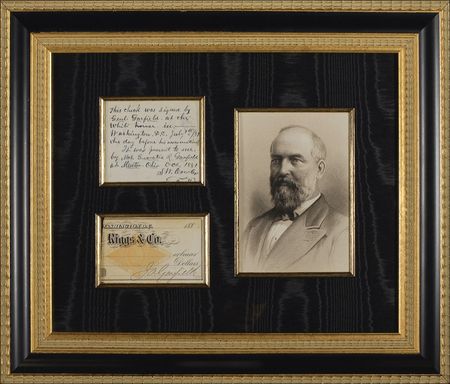 This check was signed by
Genl. Garfield at the
White House in
Washington D.C. July 1st /81
the day before his
It was present to me
by Mrs. Lucretia R. Garfield
at Mentor Ohio Oct. 1881
WASHINGTON, D.C. 188
Riggs & Co.
Dollars
J A Garfield